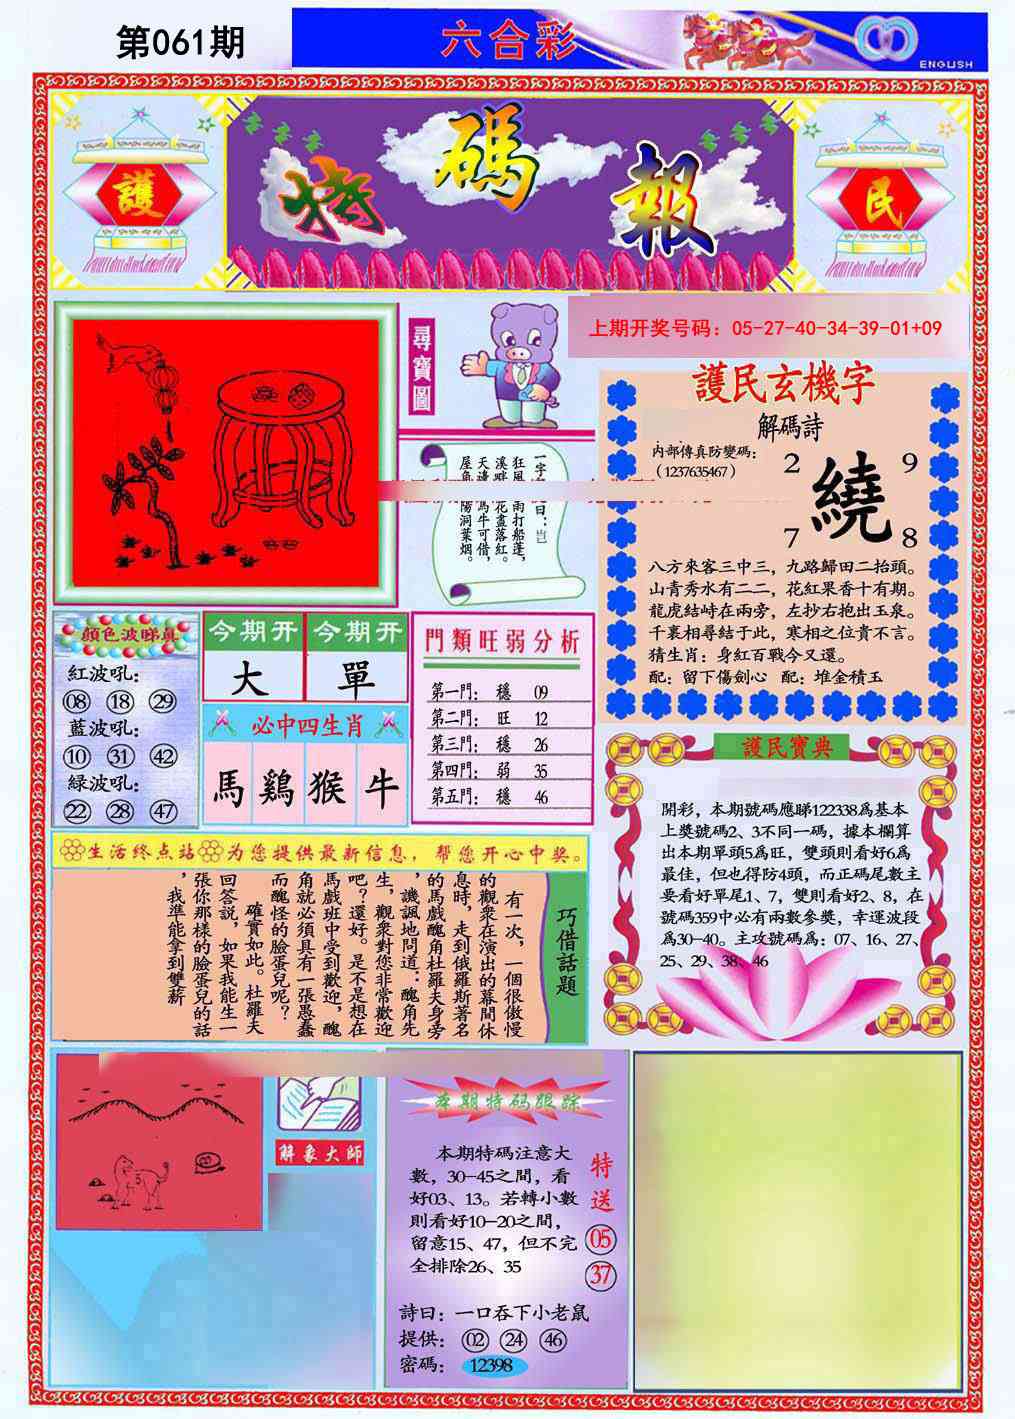 第061期
六合彩
ENGLISH
護
特碼報
民
尋寶圖
上期开奖号码：05-27-40-34-39-01+09
護民玄機字
解碼詩
内部傳真防變碼：
（1237635467）
2
9
繞
7
8
八方來客三中三，九路歸田二抬頭。
山青秀水有二二，花紅果香十有期。
龍虎結峙在兩旁，左抄右抱出玉泉。
千裏相尋結于此，寒相之位貴不言。
猜生肖：身紅百戰今又還。
配：留下傷劍心 配：堆金積玉
顔色波睇真
紅波吼：
08 18 29
藍波吼：
10 31 42
緑波吼：
22 28 47
今期开
今期开
大
單
必中四生肖
馬
鷄
猴
牛
門類旺弱分析
第一門： 穩 09
第二門： 旺 12
第三門： 穩 26
第四門： 弱 35
第五門： 穩 46
護民寶典
開彩，本期號碼應睇122338爲基本
上獎號碼2、3不同一碼，據本欄算
出本期單頭5爲旺，雙頭則看好6爲
最佳，但也得防4頭，而正碼尾數主
要看好單尾1、7，雙則看好2、8，在
號碼359中必有兩數參獎，幸運波段
爲30-40。主攻號碼爲：07、16、27、
25、29、38、46
生活终点站 为您提供最新信息，帮您开心中奖。
巧借話題
有一次，一個很傲慢
的觀衆在演出的幕間休
息時，走到俄羅斯著名
的馬戲醜角杜羅夫身旁
，譏諷地問道：醜角先
生，觀衆對您非常歡迎
吧？還好。是不是想在
馬戲班中受到歡迎，醜
角就必須具有一張愚蠢
而醜怪的臉蛋兒呢？
確實如此。杜羅夫
回答説，如果我能生一
張你那樣的臉蛋兒的話
，我準能拿到雙薪
解象大師
本期特码跟踪
本期特碼注意大
數，30-45之間，看
好03、13。若轉小數
則看好10-20之間，
留意15、47，但不完
全排除26、35
特送
05
37
詩曰：一口吞下小老鼠
提供：02 24 46
密碼：12398